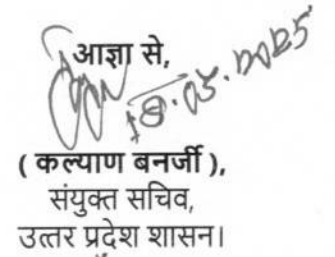 आज्ञा से,
18.05.2025
( कल्याण बनर्जी ),
संयुक्त सचिव,
उत्तर प्रदेश शासन।